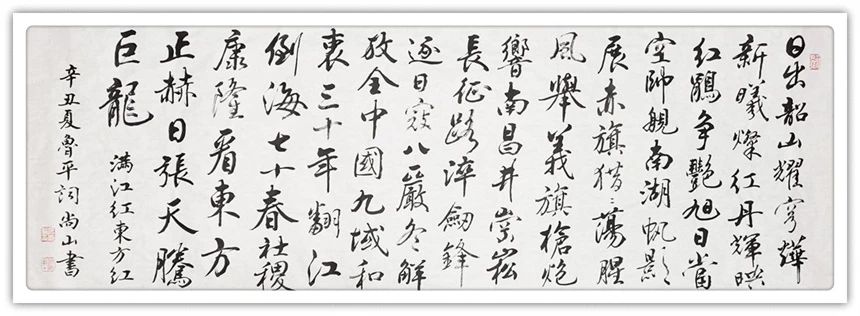 日出韶山耀穹。烨
新曦灿红丹辉映
红鹃争艳旭日当
空帅舰南湖帆影
展赤旗猎〻荡腥
风举义旗枪炮
响南昌井崇崧
长征路淬剑锋
逐日寇八严冬解
放全中國九域和
衷三十年翻江
倒海七十春社稷
康隆看東方
正赫日張天騰
巨龍
满江红東方红
辛丑夏魯平词尚山書